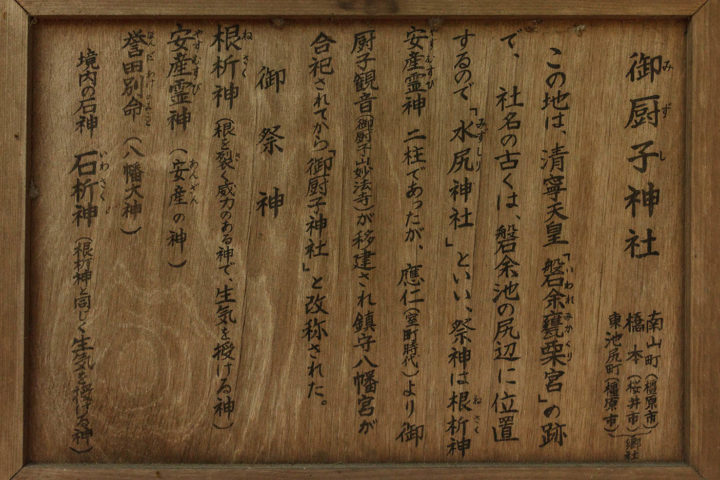 御厨子神社
南山町（橿原市）
橋本（桜井市）郷社
東池尻町（橿原市）
この地は、清寧天皇「磐余甕栗宮」の跡
で、社名の古くは、磐余池の尻辺に位置
するので「水尻神社」といい、祭神は根析神
安産霊神 二柱であったが、應仁（室町時代）より御
厨子観音（御厨子山妙法寺）が移建され鎮守八幡宮が
合祀されてから「御厨子神社」と改称された。
御祭神
根析神（根を裂く威力のある神で、生気を授ける神）
安産霊神（安産の神）
誉田別命（八幡大神）
境内の石神 石析神（根析神と同じく生気を授ける神）